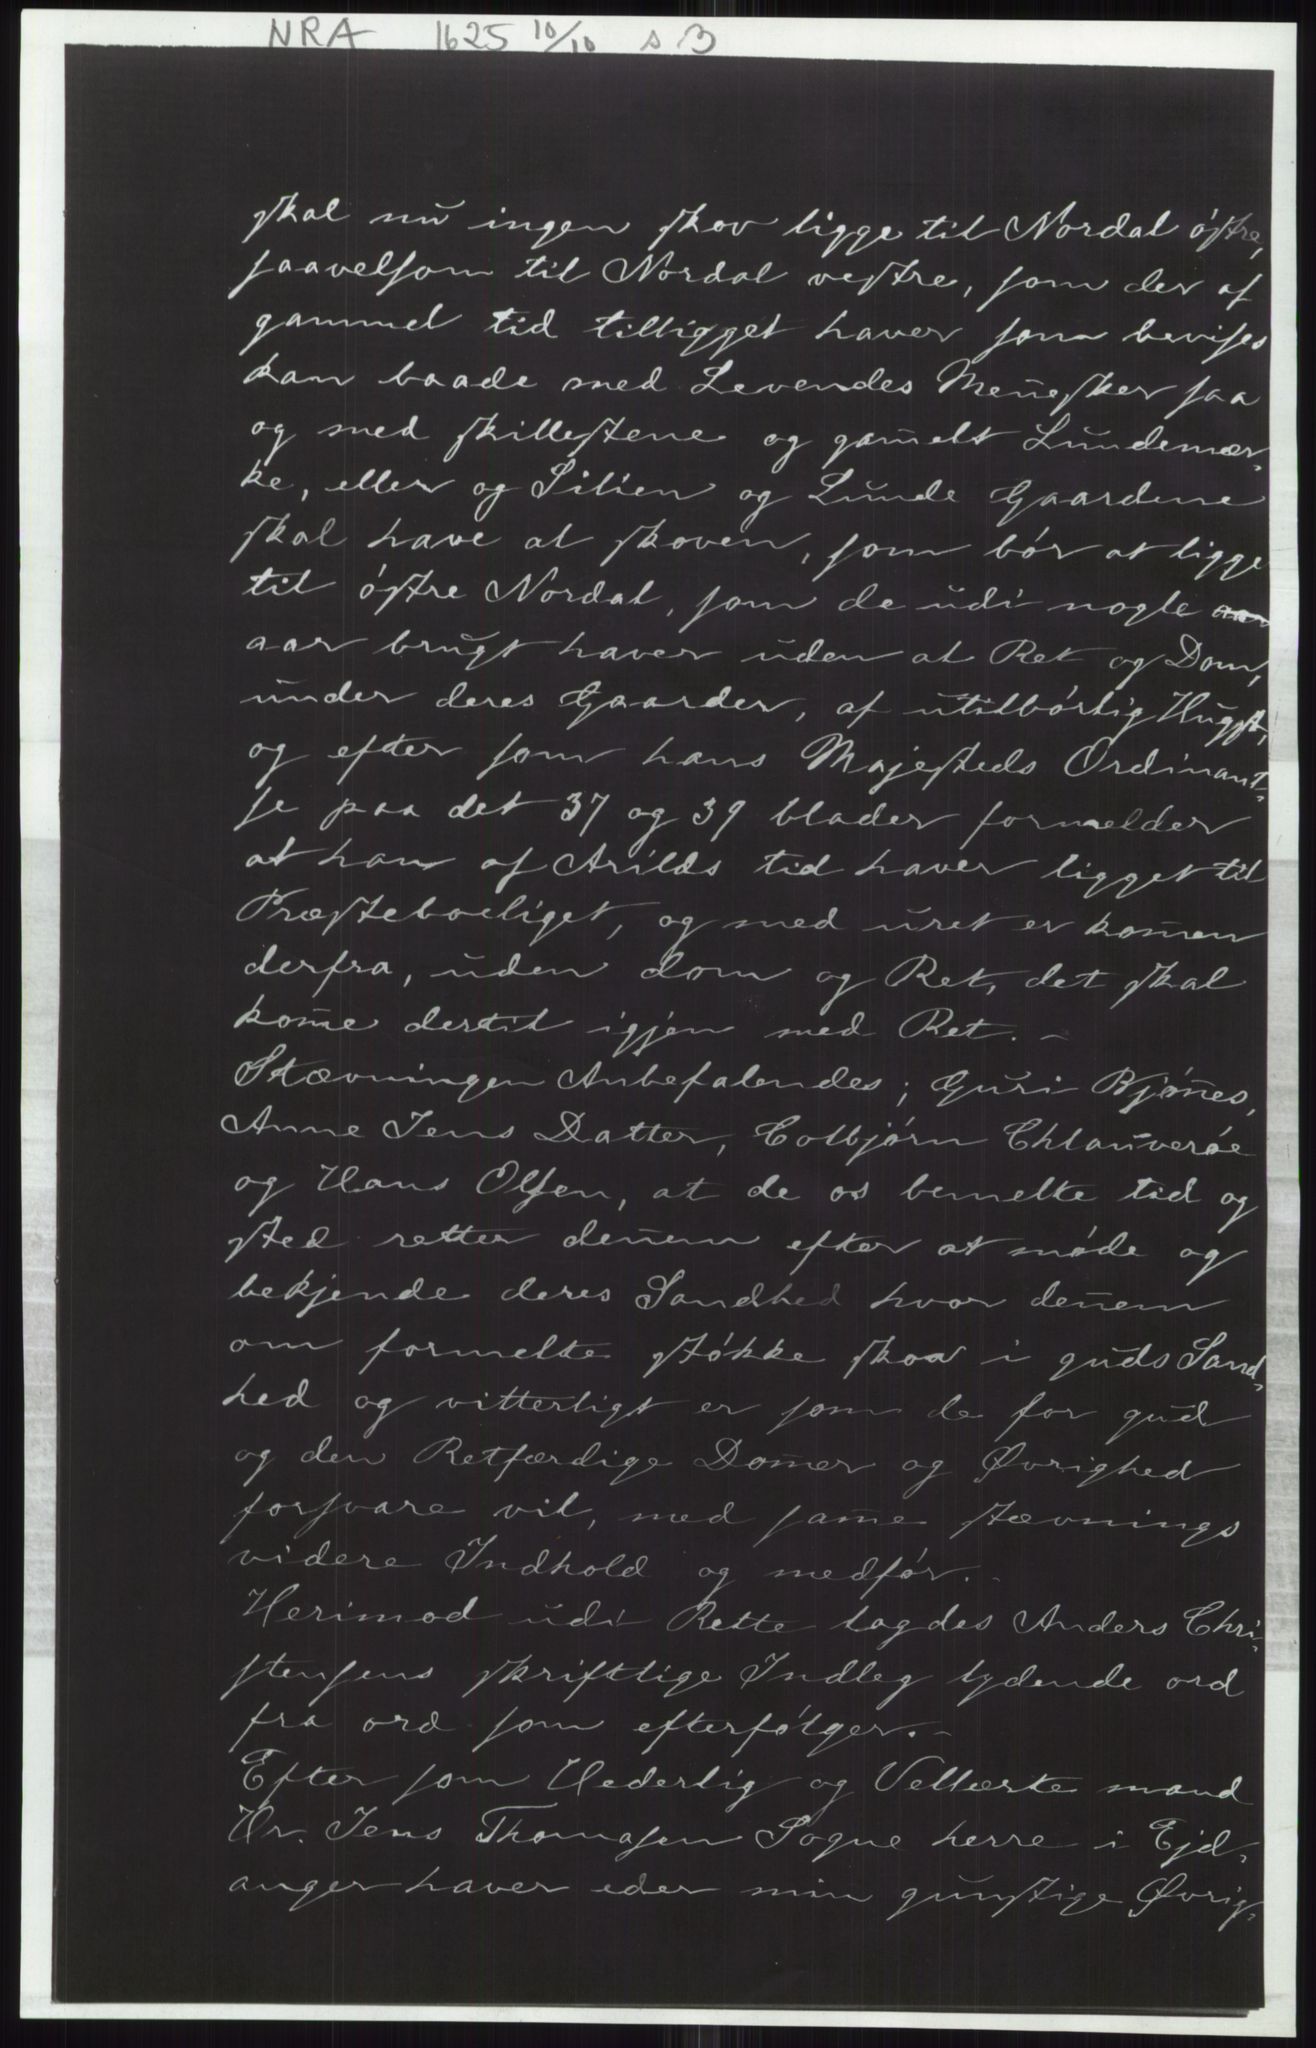 NRA 1625 10/10 s 3
skal nu ingen skov ligge til Nordal östre,
saavelsom til Nordal vestre, som der af
gammel tid tilligget haver som bevises
kan baade med Levendes Meñesker saa
og med skillestene og gam̃elt Lundemær-
ke, eller og Lilien og Lunde Gaardene
skal have at skoven, som bör at ligge
til östre Nordal, som de udi nogle aar
aar brugt haver uden at Ret og Dom,
under deres Gaarder, af utilbörlig Hugst,
og efter som hans Majesteds Ordinant-
se paa det 37 og 39 blader formelder
at han af Arilds tid haver ligget til
Præsteboeliget, og med uret er kom̃en
derfra, uden dom og Ret, det skal
kom̃e dertil igjen med Ret. -
Stævningen Anbefalendes; Guri Bjöñes,
Anne Jens Datter, Colbjörn Chlauveröe
og Hans Olsen, at de os bemelte tid og
sted retter deñem efter at møde og
bekjende deres Sandhed hvor deñem
om formelte støkke skov i guds Sand-
hed og vitterligt er som de for gud
og den Retfærdige Dom̃er og Øvrighed
forsvare vil, med sam̃e stævnings
videre Indhold og medfør. -
Herimod udi Rette lagdes Anders Chri-
stensens skriftlige Indleg lydende ord
fra ord som efterfølger. -
Efter som Hederlig og Vellærte mand
Hr. Jens Thomasen Sogne herre i Ejd-
anger haver eder min gunstige Øvrig-